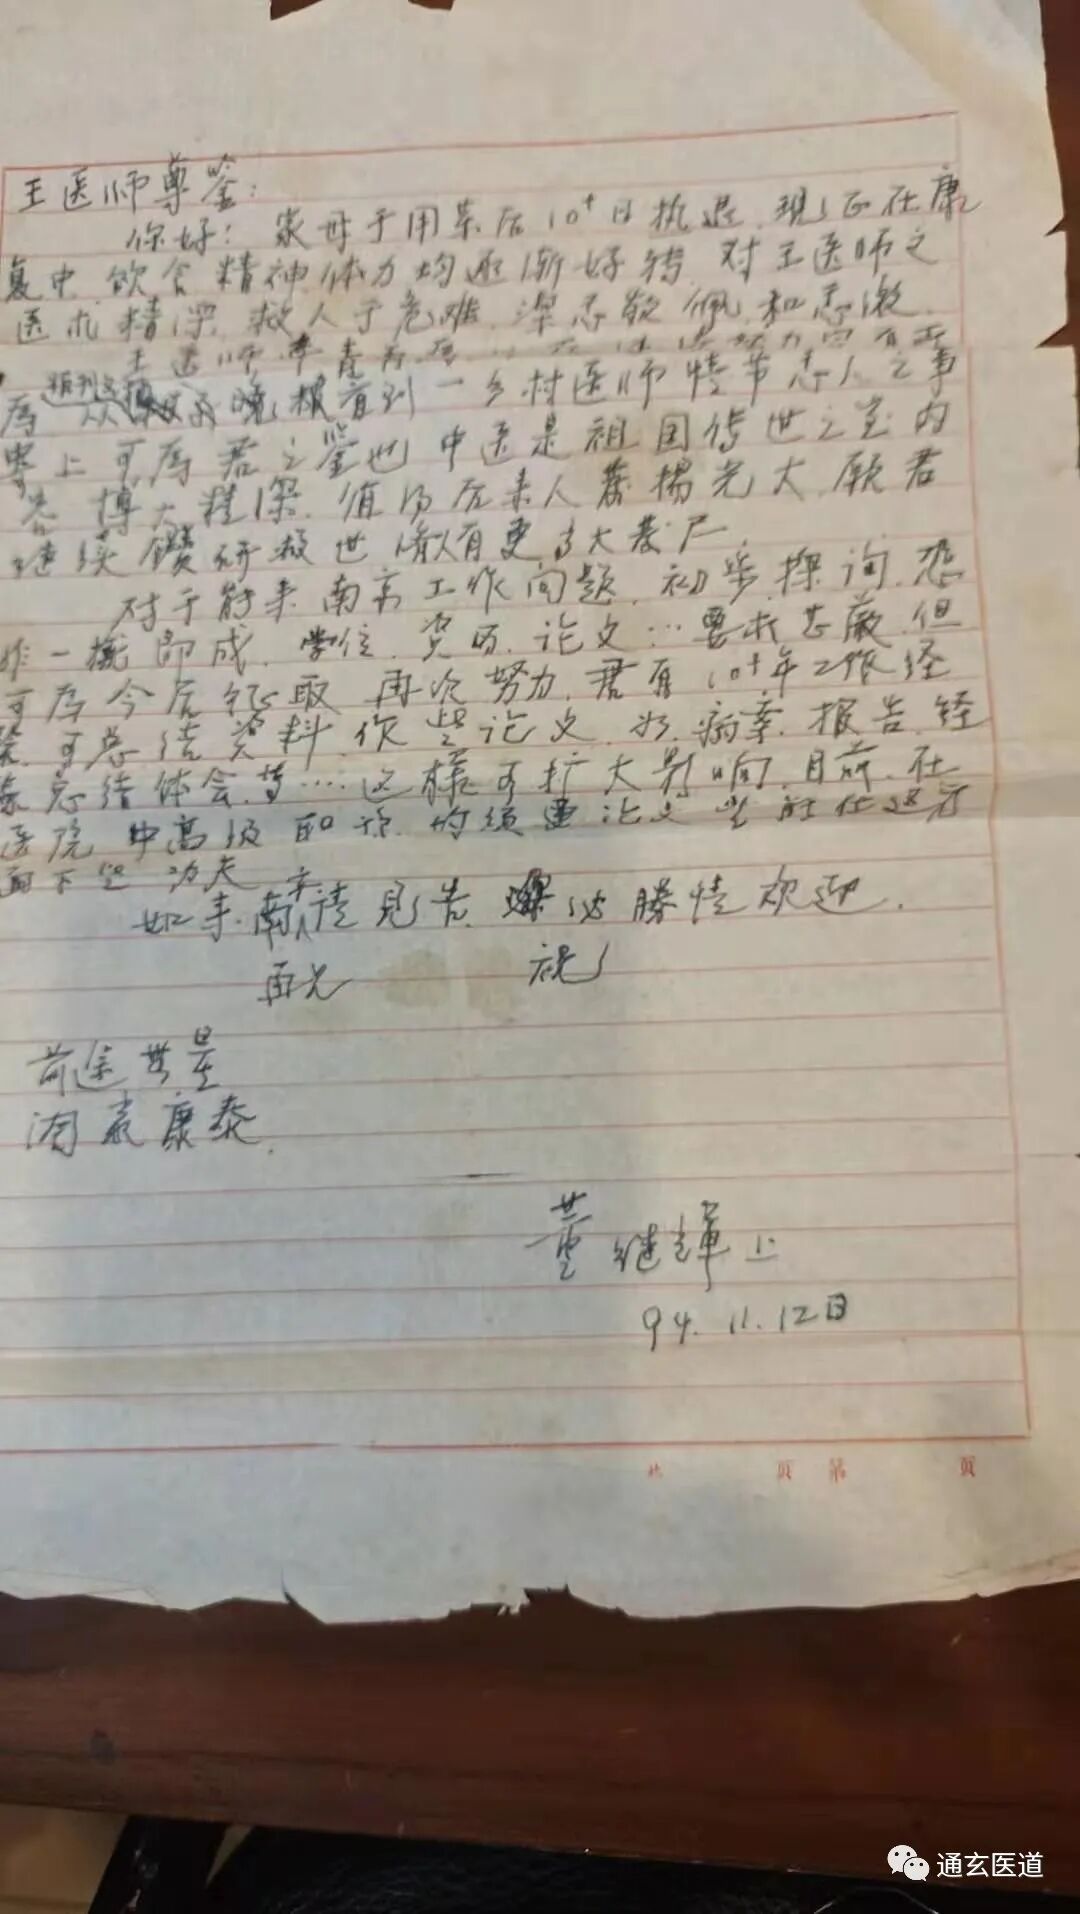 王医师尊鉴：
你好！家母于用药后10+日热退，现正在康
复中，饮食精神体力均逐渐好转，对王医师之
医术精深，救人于危难，深感敬佩和感激。
王医师年青有
为 从 晚报看到一乡村医师情节感人之事
上可为君之鉴也 中医是祖国传世之宝内
容博大精深，值得后来人发扬光大，愿君
继续鑽研救世 有更多大发
对于能来南京工作问题，初步探询，恐
非一概即成，学位、资历、论文…要求甚严，但
可为今后征取再次努力，君有10+年工作经
验，可总结资料，作些论文，如病案报告，经
总结体会等…这样可扩大影响，目前在
医院中高级职称均须要论文 能在这方
面下些功夫
如来南京请见告，必勝情欢迎。
再见 祝
前途无量
阖家康泰
董继辉上
94.11.12日
共 页 第 页
通玄医道